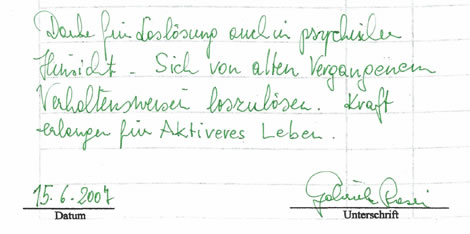 Danke für Loslösung auch in psychischer
Hinsicht - Sich von alten Vergangenen
Verhaltensweisen loszulösen. Kraft
erlangen für Aktiveres Leben.
15.6.2007
Datum
Unterschrift